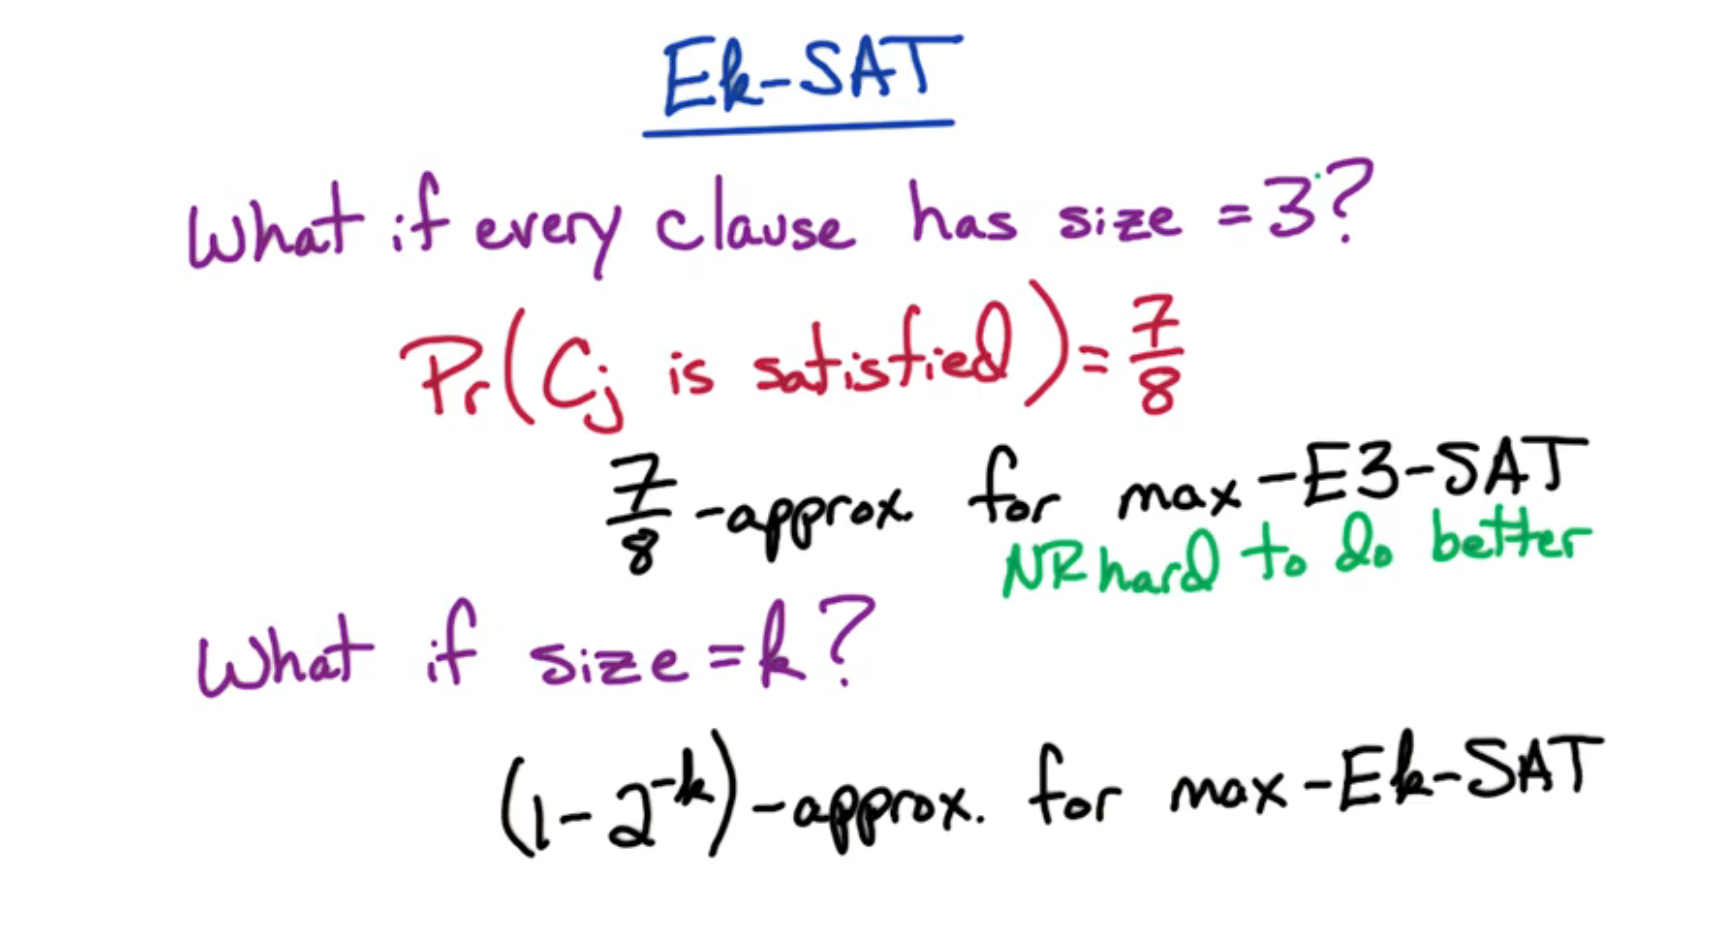 Ek-SAT
What if every clause has size = 3?
Pr(Cj is satisfied) = 7/8
7/8 - approx. for max-E3-SAT
NP hard to do better
What if size = k?
(1-2^-k) - approx. for max-Ek-SAT